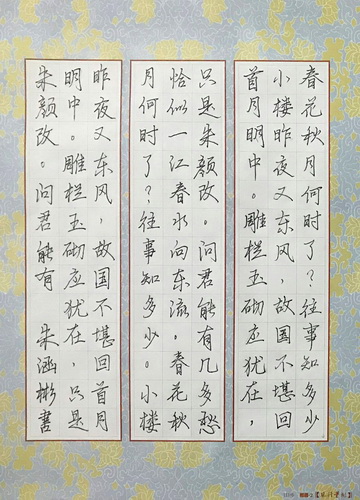 春花秋月何时了？往事知多少
小楼昨夜又东风，故国不堪回
首月明中。雕栏玉砌应犹在，
只是朱颜改。问君能有几多愁
恰似一江春水向东流。春花秋
月何时了？往事知多少。小楼
昨夜又东风，故国不堪回首月
明中。雕栏玉砌应犹在，只是
朱颜改。问君能有 朱涵彬书